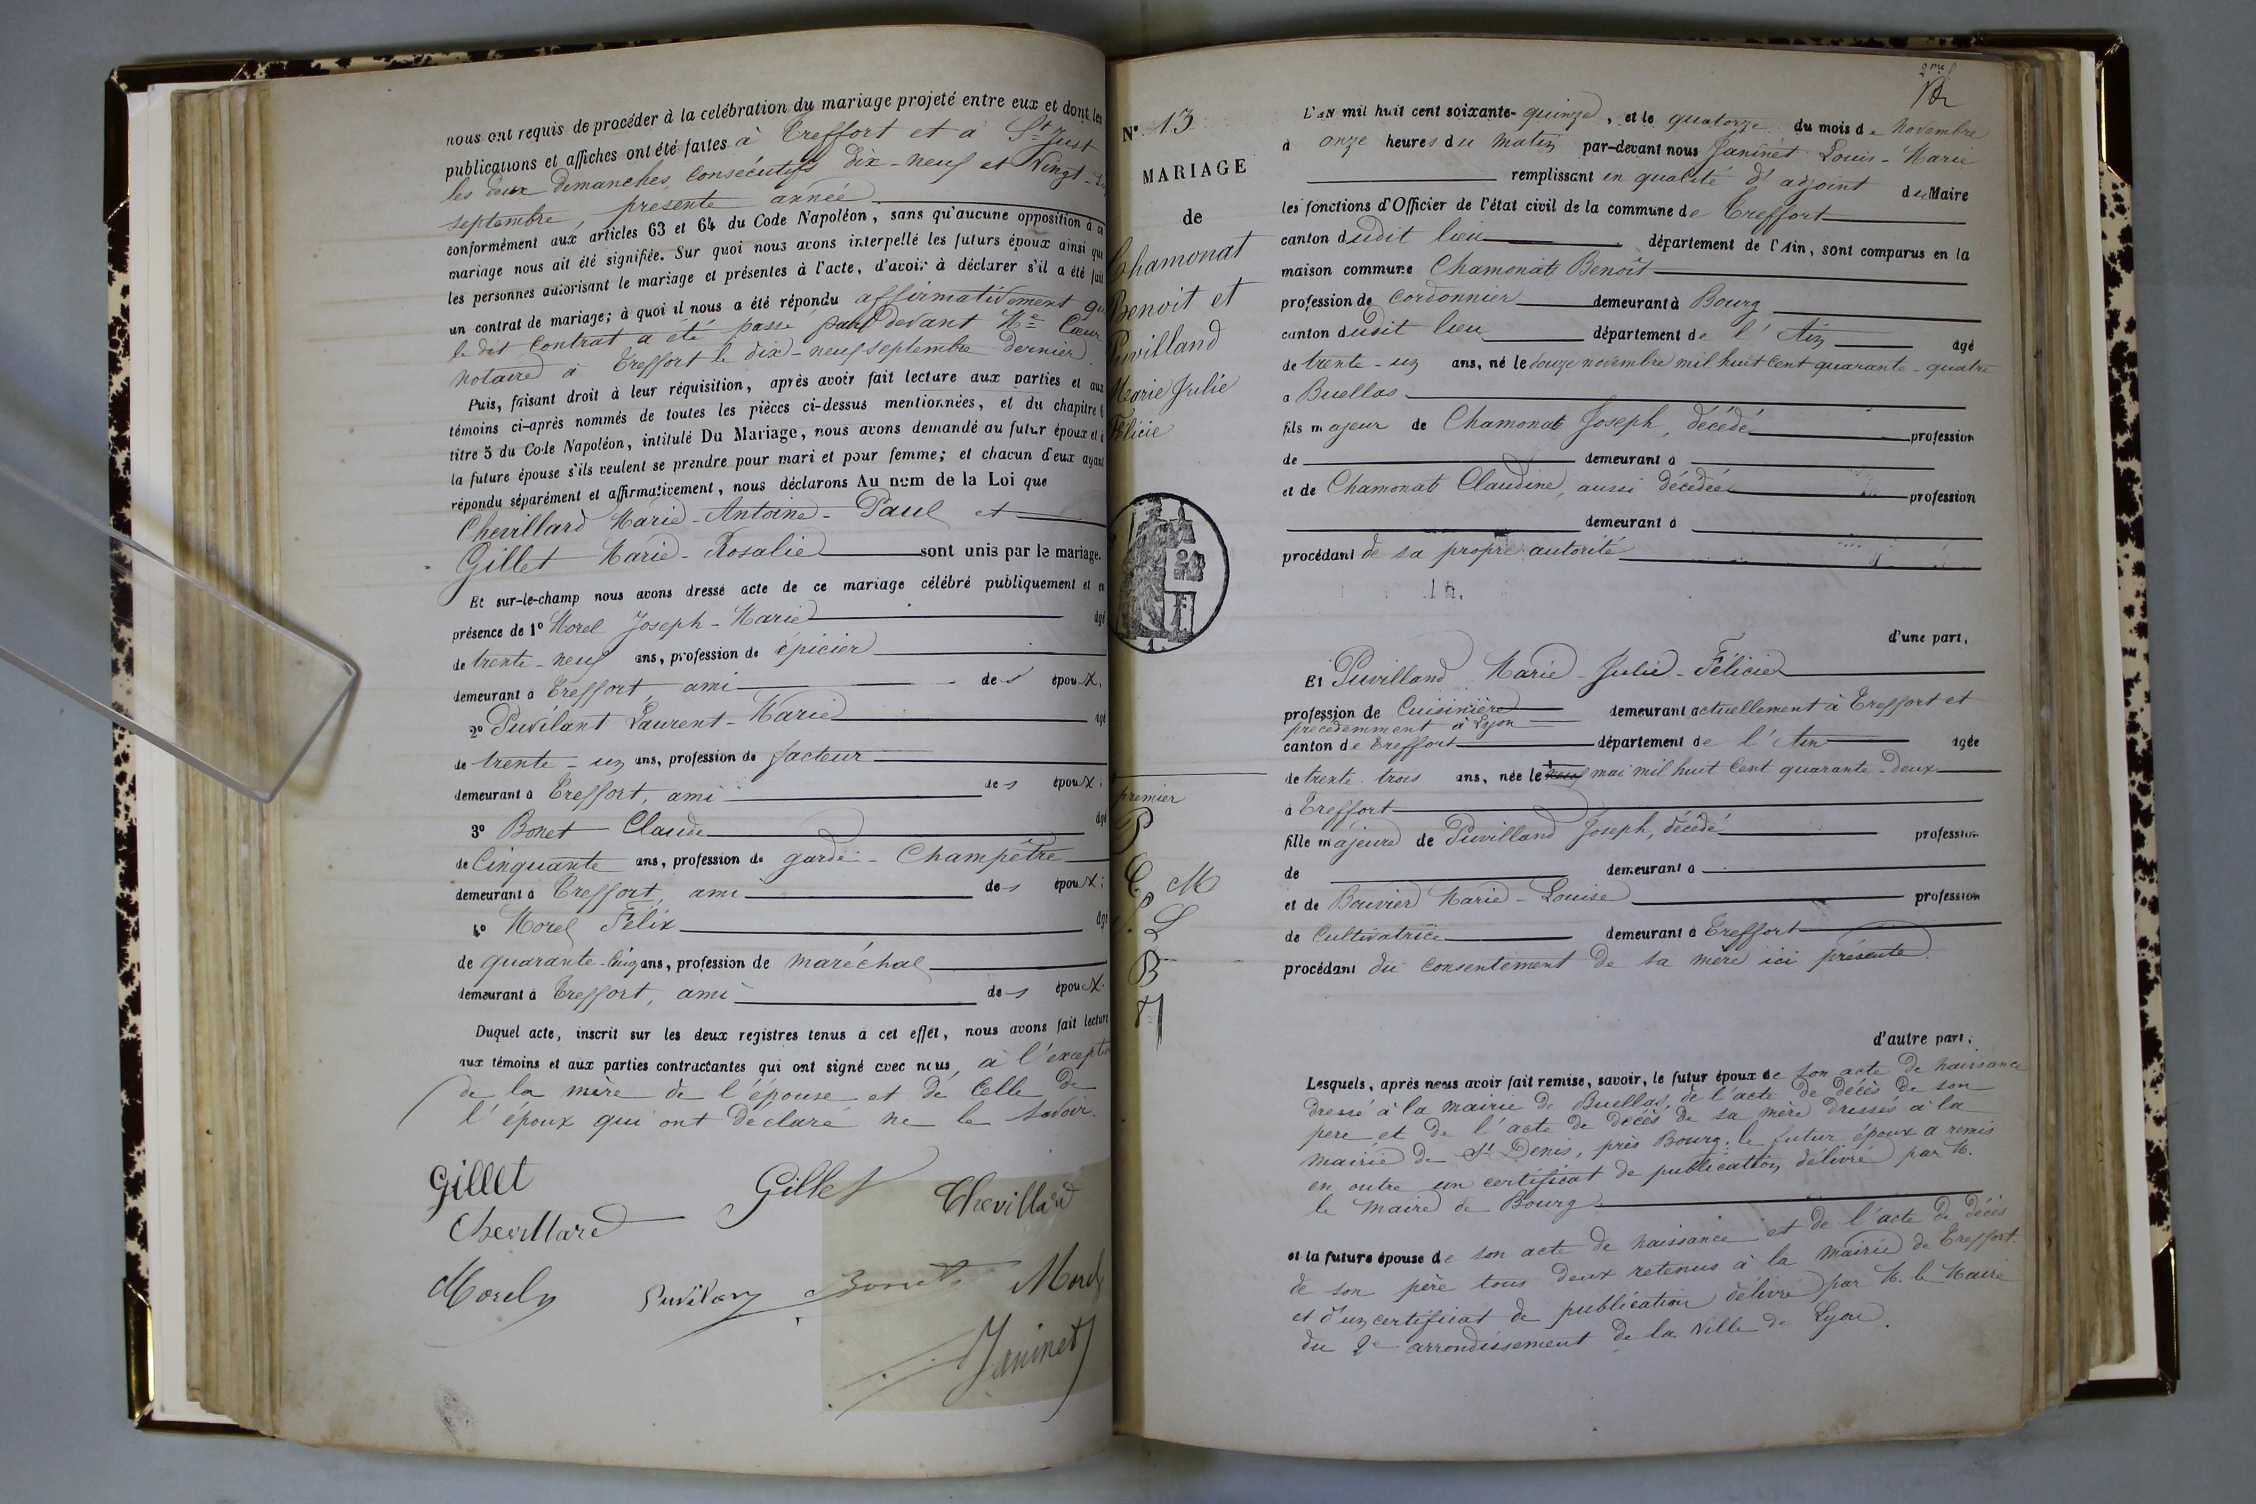 nous ont requis de procéder à la celébration du mariage projeté entre eux et dont les
publications et affiches ont été faites à Treffort et à St Just
les deux dimanches consécutifs dix-neuf et Vingt-
septembre, presente année
conformément aux articles 63 et 64 du Code Napoléon, sans qu'aucune opposition à ce
mariage nous ait été signifiée. Sur quoi nous avons interpellé les futurs époux ainsi que
les personnes autorisant le mariage et présentes à l'acte, d'avoir à déclarer s'il a été fait
un contrat de mariage; à quoi il nous a été répondu affirmativement que
le dit contrat a été passé devant Me Cœur
notaire à Treffort le dix-neuf septembre dernier
Puis, faisant droit à leur réquisition, après avoir fait lecture aux parties et aux
témoins ci-après nommés de toutes les pièces ci-dessus mentionnées, et du chapitre 6
titre 5 du Code Napoléon, intitulé Du Mariage, nous avons demandé au futur époux et à
la future épouse s'ils veulent se prendre pour mari et pour femme; et chacun d'eux ayant
répondu séparément et affirmativement, nous déclarons Au nom de la Loi que
Chevillard Marie-Antoine-Paul et
Gillet Marie-Rosalie sont unis par le mariage.
Et sur-le-champ nous avons dressé acte de ce mariage célébré publiquement et en
présence de 1° Morel Joseph-Marie âgé
de trente-neuf ans, profession de épicier
demeurant à Treffort, ami des époux,
2° Puvilant Laurent-Marie âgé
de trente-un ans, profession de facteur
demeurant à Treffort, ami des époux;
3° Bonet Claude âgé
de Cinquante ans, profession de garde-Champêtre
demeurant à Treffort, ami des époux;
4° Morel Félix âgé
de quarante-cinq ans, profession de maréchal
demeurant à Treffort, ami des époux.
Duquel acte, inscrit sur les deux registres tenus à cet effet, nous avons fait lecture
aux témoins et aux parties contractantes qui ont signé avec nous, à l'exception
de la mère de l'épouse et de Celle de
l'époux qui ont déclaré ne le savoir.
Gillet Gillet Chevillard
Chevillard
Morel Puvilan Bonet Morel
Janinet
2me f
N° 13
MARIAGE
de
Chamonat
Benoit et
Puvilland
Marie Julie
Félicie
premier
P
C. M
J. L
B
L'AN mil huit cent soixante-quinze, et le quatorze du mois de novembre
à onze heures du matin par-devant nous Janinet Louis-Marie
remplissant en qualité d'adjoint du Maire
les fonctions d'Officier de l'état civil de la commune de Treffort
canton dudit lieu département de l'Ain, sont comparus en la
maison commune Chamonat Benoît
profession de Cordonnier demeurant à Bourg
canton dudit lieu département de l'Ain âgé
de trente-un ans, né le douze novembre mil huit cent quarante-quatre
à Buellas
fils majeur de Chamonat Joseph, décédé profession
de demeurant à
et de Chamonat Claudine, aussi décédée profession
demeurant à
procédant de sa propre autorité
d'une part,
Et Puvilland Marie-Julie-Félicie
profession de Cuisinière demeurant actuellement à Treffort et
précédemment à Lyon
canton de Treffort département de l'Ain âgée
de trente-trois ans, née le mai mil huit cent quarante-deux
à Treffort
fille majeure de Puvilland Joseph, décédé profession
de demeurant à
et de Bouvier Marie-Louise profession
de Cultivatrice demeurant à Treffort
procédant du consentement de sa mère ici présente
d'autre part,
Lesquels, après nous avoir fait remise, savoir, le futur époux de son acte de naissance
dressé à la mairie de Buellas, de l'acte de décès de son
père et de l'acte de décès de sa mère dressés à la
mairie de St Denis, près Bourg. le futur époux a remis
en outre un certificat de publication délivré par M.
le maire de Bourg
et la future épouse de son acte de naissance et de l'acte de décès
de son père tous deux retenus à la mairie de Treffort.
et d'un certificat de publication délivré par M. le Maire
du 2e arrondissement de la Ville de Lyon.